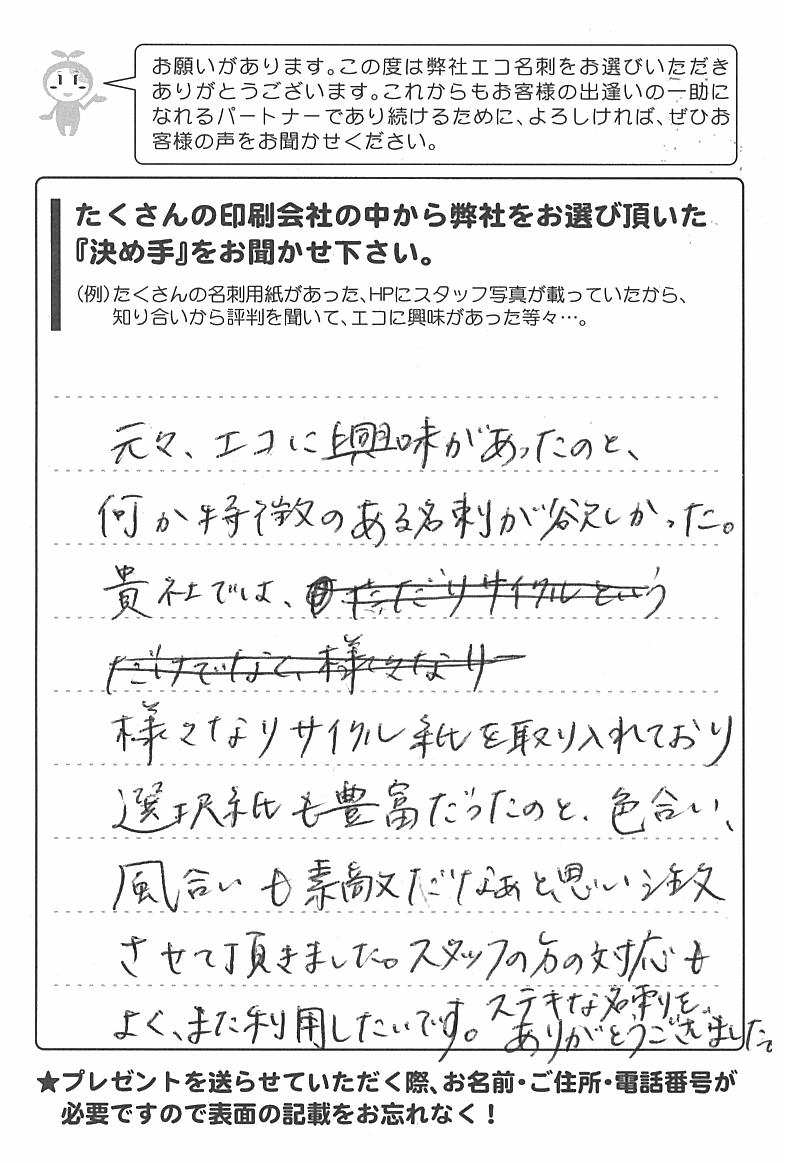 お願いがあります。この度は弊社エコ名刺をお選びいただき
ありがとうございます。これからもお客様の出逢いの一助に
なれるパートナーであり続けるために、よろしければ、ぜひお
客様の声をお聞かせください。
たくさんの印刷会社の中から弊社をお選び頂いた
『決め手』をお聞かせ下さい。
(例)たくさんの名刺用紙があった、HPにスタッフ写真が載っていたから、
知り合いから評判を聞いて、エコに興味があった等々…。
元々、エコに興味があったのと、
何か特徴のある名刺が欲しかった。
貴社では、ただリサイクルという
だけでなく、様々なリ
様々なリサイクル紙を取り入れており
選択紙も豊富だったのと、色合い、
風合いも素敵だなぁと思い注文
させて頂きました。スタッフの方の対応も
よく、また利用したいです。ステキな名刺を、
ありがとうございました。
★プレゼントを送らせていただく際、お名前・ご住所・電話番号が
必要ですので表面の記載をお忘れなく！